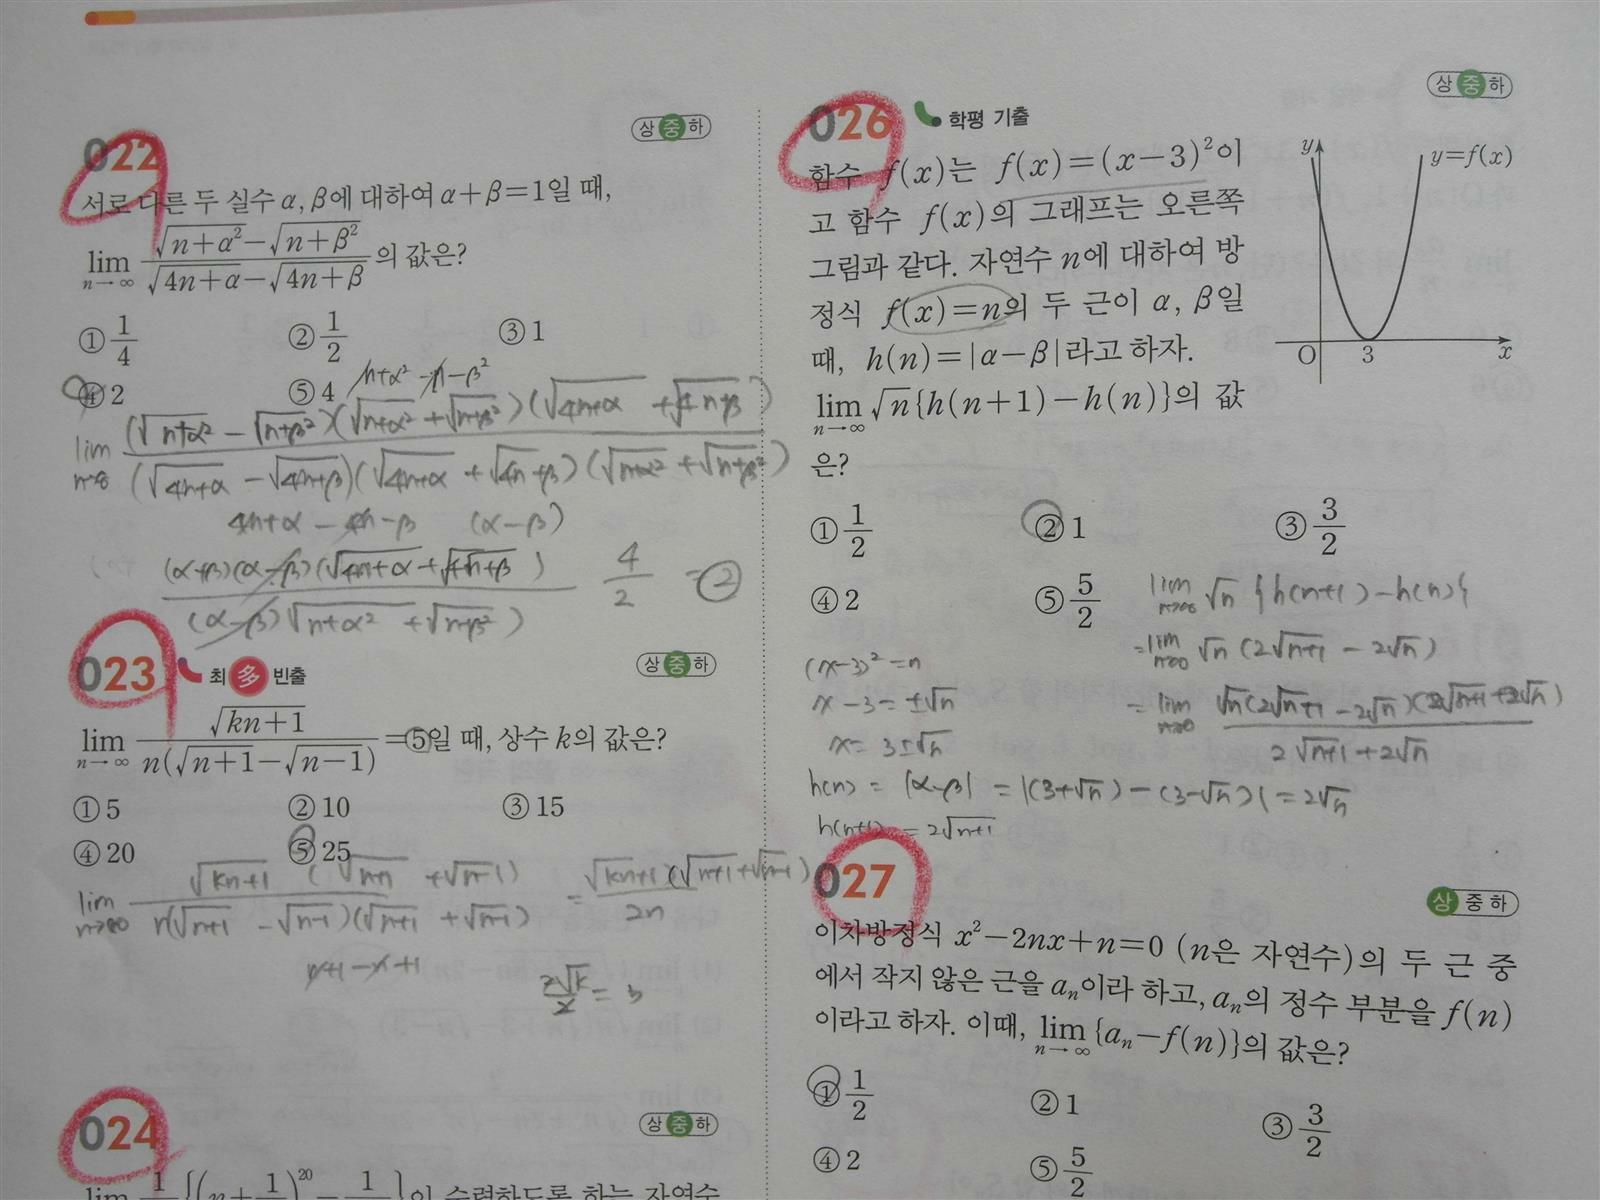 022
상 중 하
서로 다른 두 실수 α, β에 대하여 α+β=1일 때,
lim n→∞ (√(n+α²)−√(n+β²))/(√(4n+α)−√(4n+β)) 의 값은?
① 1/4 ② 1/2 ③ 1
④ 2 ⑤ 4
n+α² −n−β²
lim n→∞ (√(n+α²) − √(n+β²))(√(n+α²) + √(n+β²))(√(4n+α) + √(4n+β)) / (√(4n+α) − √(4n+β))(√(4n+α) + √(4n+β))(√(n+α²) + √(n+β²))
4n+α − 4n−β (α−β)
(α+β)(α−β)(√(4n+α) + √(4n+β)) / (α−β)√(n+α²) + √(n+β²)) 4/2 = 2
023 최 多 빈출
상 중 하
lim n→∞ √(kn+1) / n(√(n+1)−√(n−1)) = 5일 때, 상수 k의 값은?
① 5 ② 10 ③ 15
④ 20 ⑤ 25
lim n→∞ √(kn+1) (√(n+1) + √(n−1)) / n(√(n+1) − √(n−1))(√(n+1) + √(n−1)) = √(kn+1)(√(n+1) + √(n−1)) / 2n
n+1−n+1
2√k/2 = 5
024
상 중 하
026 학평 기출
상 중 하
함수 f(x)는 f(x)=(x−3)²이
고 함수 f(x)의 그래프는 오른쪽
그림과 같다. 자연수 n에 대하여 방
정식 f(x)=n의 두 근이 α, β일
때, h(n)=|α−β|라고 하자.
lim n→∞ √n{h(n+1)−h(n)}의 값
은?
y
y=f(x)
O 3 x
① 1/2 ② 1 ③ 3/2
④ 2 ⑤ 5/2
lim n→∞ √n {h(n+1) − h(n)}
= lim n→∞ √n (2√(n+1) − 2√n)
= lim n→∞ √n(2√(n+1) − 2√n)(2√(n+1) + 2√n) / 2√(n+1) + 2√n
(x−3)² = n
x−3 = ±√n
x = 3±√n
h(n) = |α−β| = |(3+√n) − (3−√n)| = 2√n
h(n+1) = 2√(n+1)
027
상 중 하
이차방정식 x²−2nx+n=0 (n은 자연수)의 두 근 중
에서 작지 않은 근을 aₙ이라 하고, aₙ의 정수 부분을 f(n)
이라고 하자. 이때, lim n→∞ {aₙ−f(n)}의 값은?
① 1/2 ② 1 ③ 3/2
④ 2 ⑤ 5/2